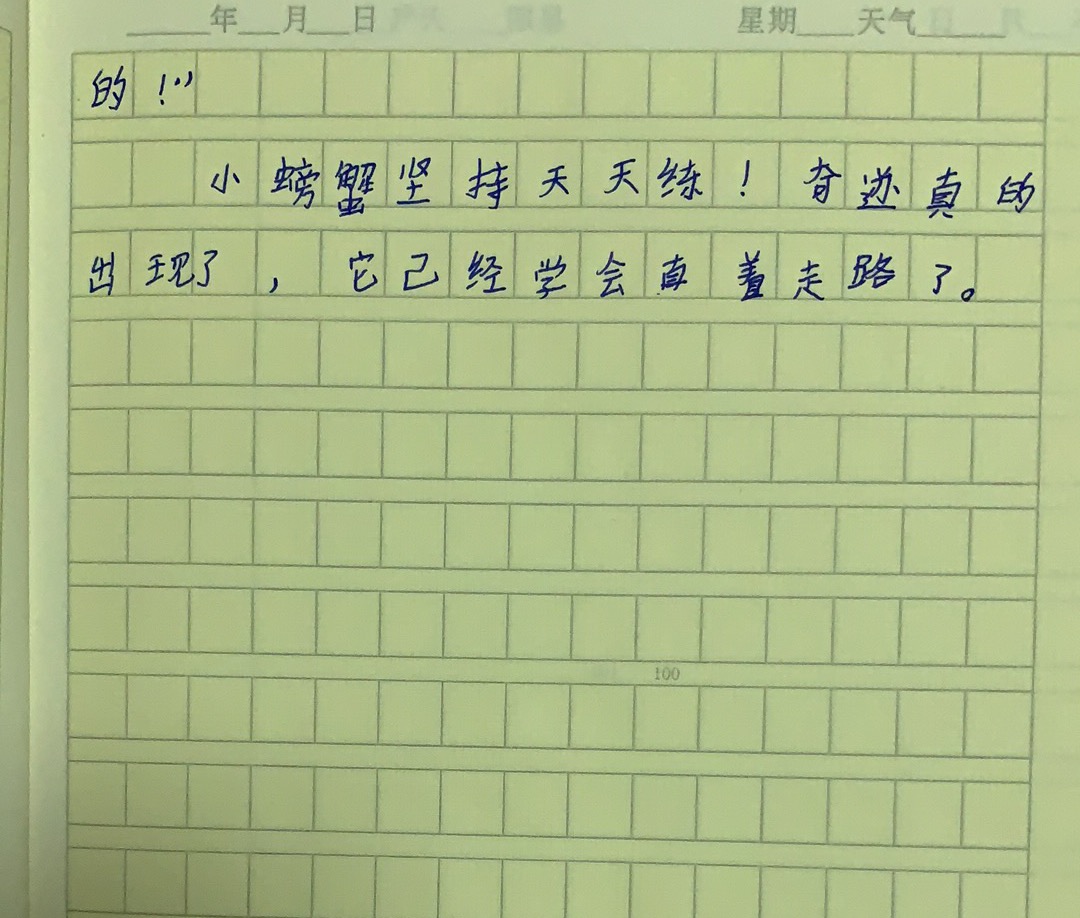 年 月 日 星期 天气
的！”
小螃蟹坚持天天练！奇迹真的
出现了，它己经学会直着走路了。
100